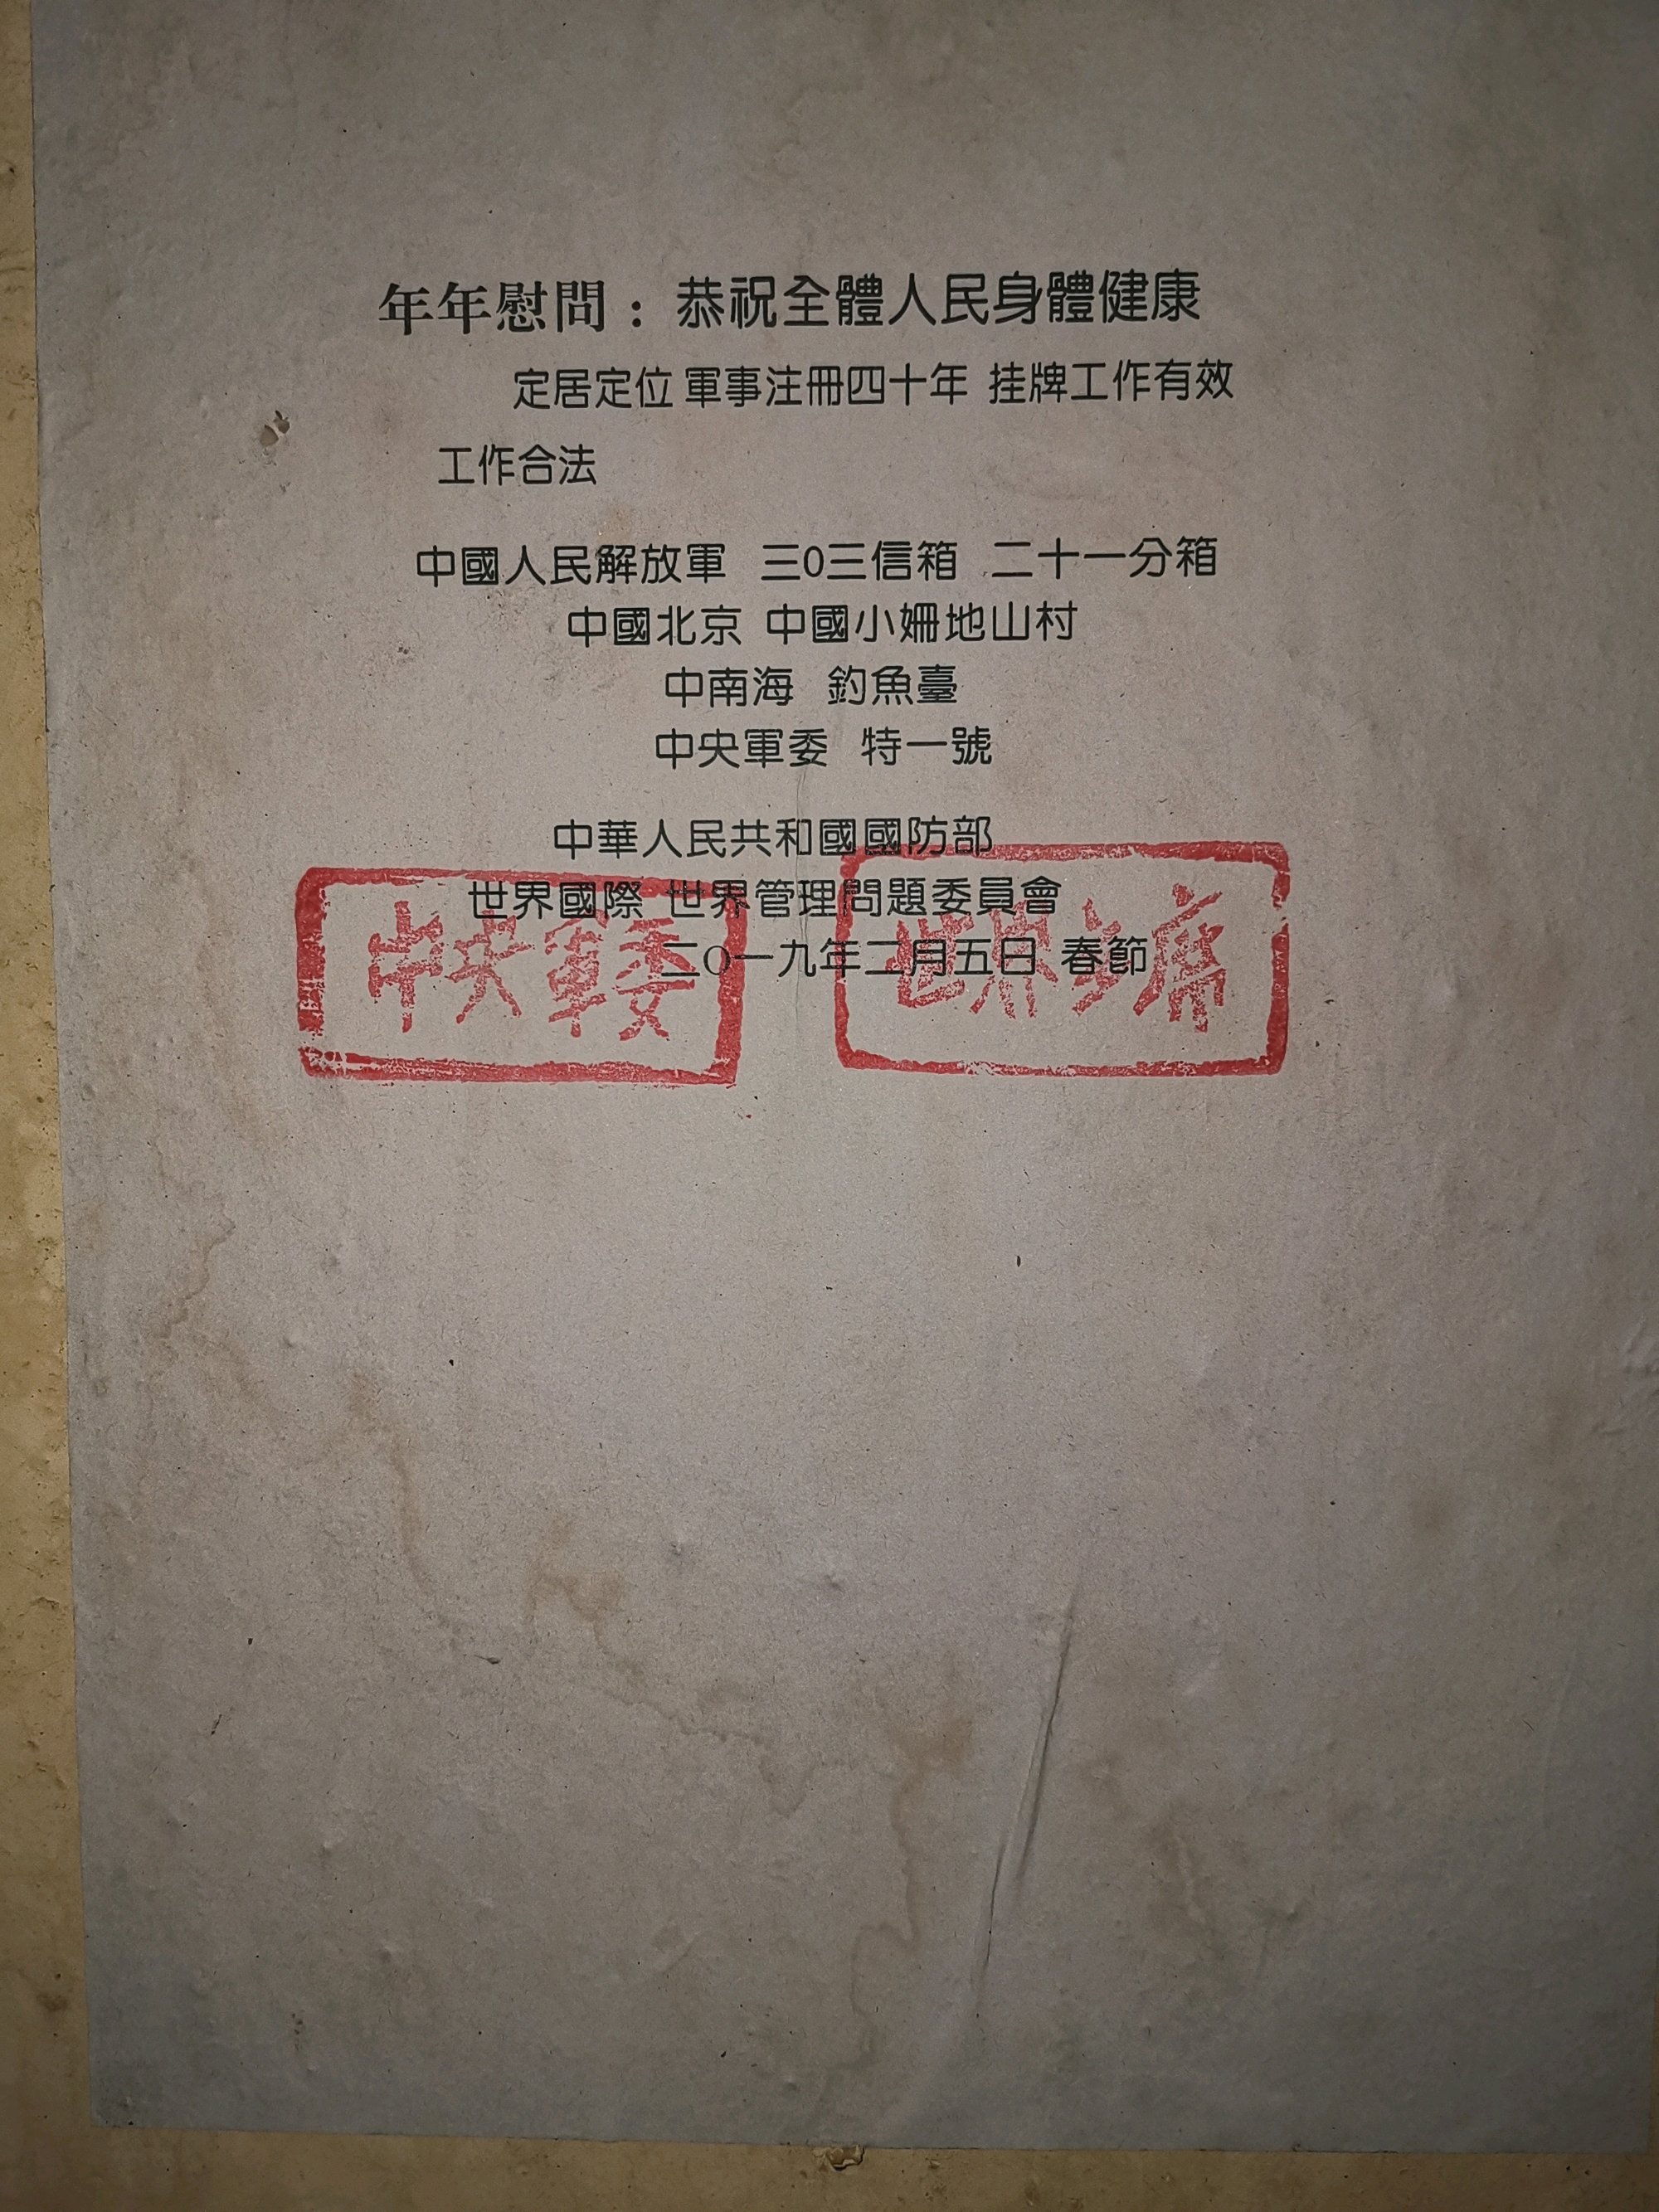 年年慰問：恭祝全體人民身體健康
定居定位 軍事注冊四十年 挂牌工作有效
工作合法
中國人民解放軍 三0三信箱 二十一分箱
中國北京 中國小姍地山村
中南海 釣魚臺
中央軍委 特一號
中華人民共和國國防部
世界國際 世界管理問題委員會
二0一九年二月五日 春節
中央軍委
世界主席